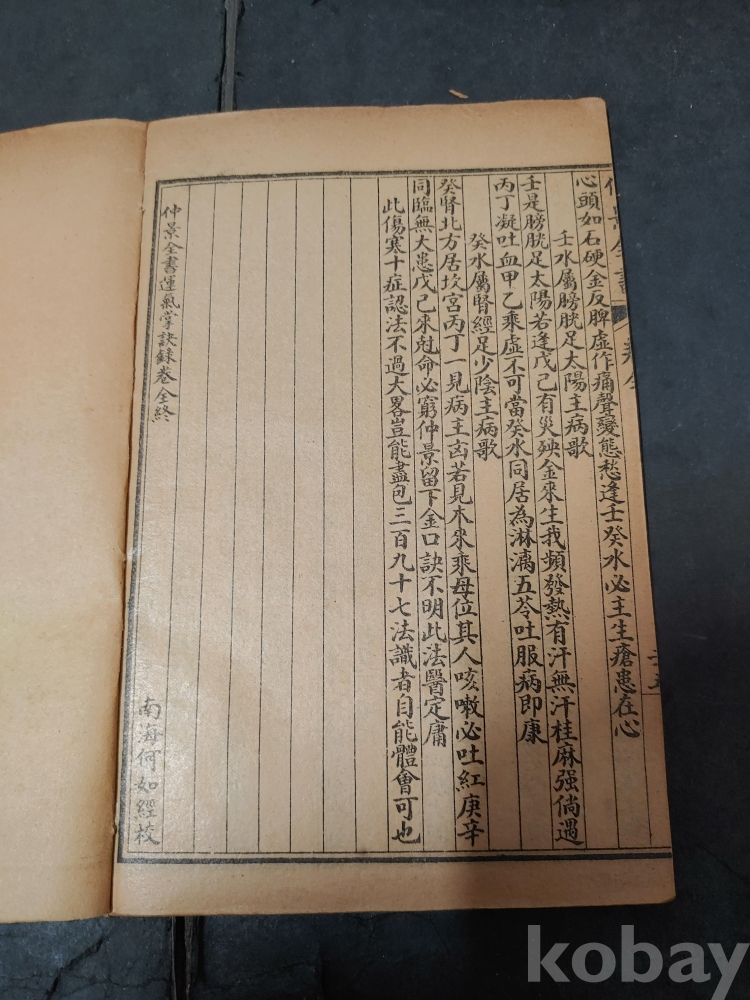 仲景全書 卷全
心頭如石硬金反脾虛作痛聲變態愁逢壬癸水必主生瘡患在心
壬水屬膀胱足太陽主病歌
壬是膀胱足太陽若逢戊己有災殃金來生我頻發熱有汗無汗桂麻强倘遇
丙丁凝吐血甲乙乘虛不可當癸水同居為淋漓五苓吐服病即康
癸水屬腎經足少陰主病歌
癸腎北方居坎宮丙丁一見病主凶若見木來乘母位其人咳嗽必吐紅庚辛
同臨無大患戊己來尅命必窮仲景留下金口訣不明此法醫定庸
此傷寒十症認法不過大畧豈能盡包三百九十七法識者自能體會可也
仲景全書運氣掌訣録卷全終
南海何如經校
kobay